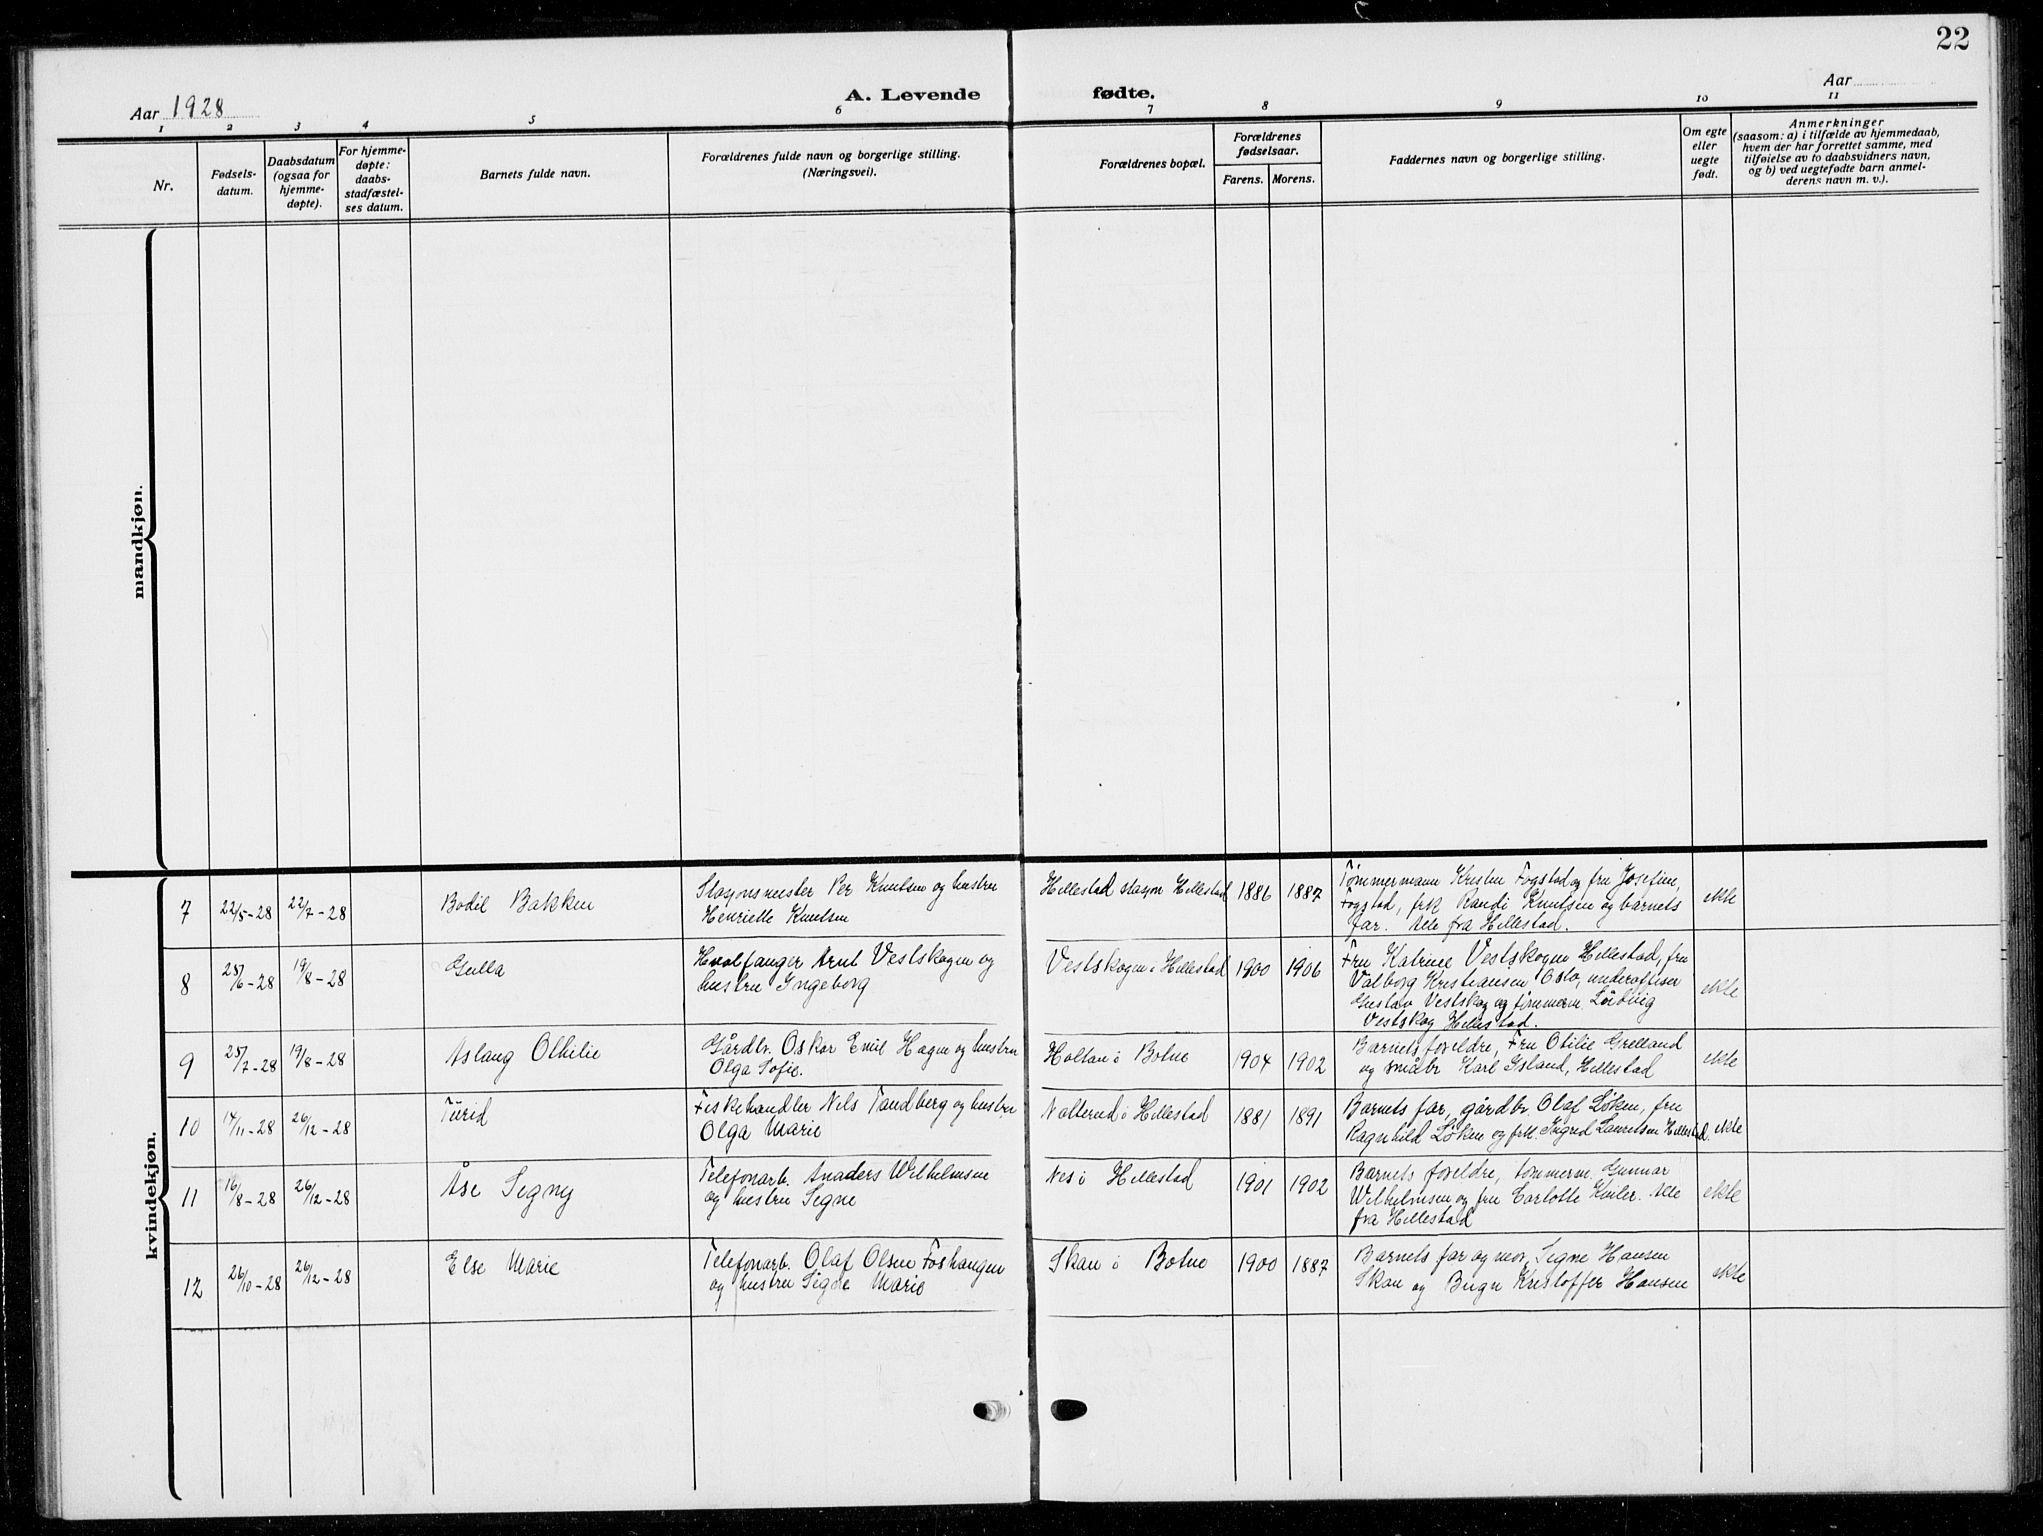 22
Aar 1928
A. Levende fødte.
Aar
1 2 3 4 5 6 7 8 9 10 11
Nr.
Fødsels-
datum.
Daabsdatum
(ogsaa for
hjemme-
døpte).
For hjemme-
døpte:
daabs-
stadfæstel-
ses datum.
Barnets fulde navn.
Forældrenes fulde navn og borgerlige stilling.
(Næringsvei).
Forældrenes bopæl.
Forældrenes
fødselsaar.
Farens. Morens.
Faddernes navn og borgerlige stilling.
Om egte
eller
uegte
født.
Anmerkninger
(saasom: a) i tilfælde av hjemmedaab,
hvem der har forrettet samme, med
tilføielse av to daabsvidners navn,
og b) ved uegtefødte barn anmel-
derens navn m. v.).
mandkjøn.
kvindekjøn.
7 22/5-28 22/7-28 Bodil Bakken
Stasjonsmester Per Knutsen og hustru
Henriette Knutsen
Hillestad stasjon Hillestad 1886 1887
Tømmermann Kristen Fogstad og fru Josefine
Fogstad, frk Randi Knutsen og barnets
far. Alle fra Hillestad.
ekte
8 25/6-28 19/8-28 Gulla
Hvalfanger Arnt Vestskogen og
hustru Ingeborg
Vestskogen i Hillestad 1900 1906
Fru Katrine Vestskogen Hillestad, fru
Valborg Kristiansen Oslo, underoffiser
Gustav Vestskog og tømmerm. Ludvig
Vestskog Hillestad.
ekte
9 25/7-28 19/8-28 Aslaug Othilie
Gårdbr. Oskar Emil Hagen og hustru
Olga Sofie.
Holtan i Botne 1904 1902
Barnets foreldre, Fru Otilie Grelland
og småbr Karl Island, Hillestad
ekte
10 14/11-28 26/12-28 Turid
Fiskehandler Nils Tandberg og hustru
Olga Marie
Nalterud i Hillestad 1881 1891
Barnets far, gårdbr. Olaf Løken, fru
Ragnhild Løken og frk. Ingrid Lauritsen Hillestad.
ekte
11 16/8-28 26/12-28 Åse Signy
Telefonarb. Anders Wilhelmsen
og hustru Signe
Nes i Hillestad 1901 1902
Barnets foreldre, tømmerm. Gunnar
Wilhelmsen og fru Carlotte. Alle
fra Hillestad
ekte
12 26/10-28 26/12-28 Else Marie
Telefonarb. Olaf Olsen Foshaugen
og hustru Signe Marie
Skan i Botne 1900 1887
Barnets far og mor, Signe Hansen
Skan og Kristoffer Hansen
ekte